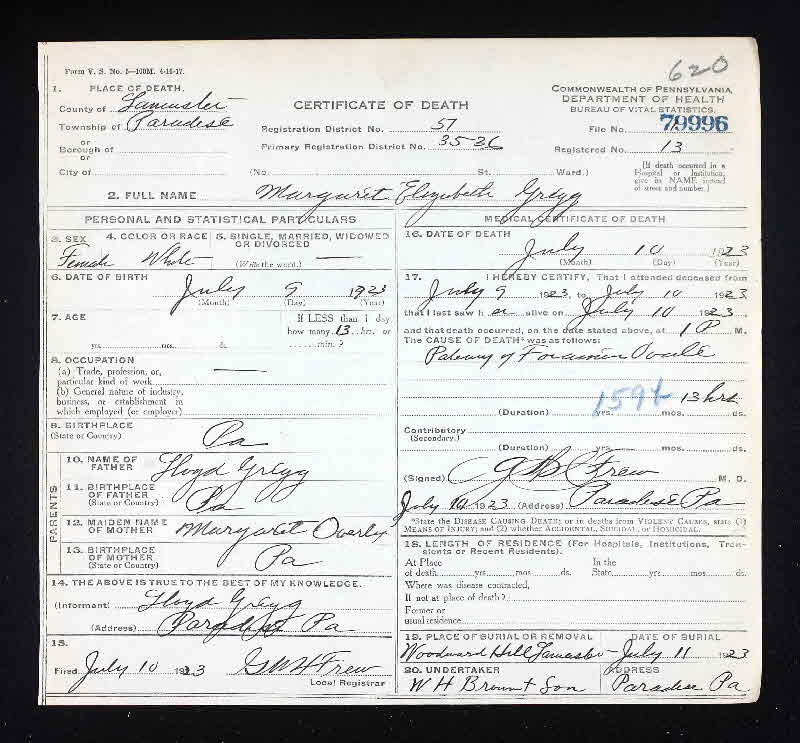 620
Form V. S. No. 5—100M. 4-16-17.
1. PLACE OF DEATH.
County of Lancaster
Township of Paradise
or
Borough of
or
City of
CERTIFICATE OF DEATH
Registration District No. 51
Primary Registration District No. 35-36
(No. St. Ward.)
COMMONWEALTH OF PENNSYLVANIA
DEPARTMENT OF HEALTH
BUREAU OF VITAL STATISTICS.
File No. 79996
Registered No. 13
(If death occurred in a Hospital or Institution, give its NAME instead of street and number.)
2. FULL NAME Margaret Elizabeth Gregg
PERSONAL AND STATISTICAL PARTICULARS
3. SEX Female
4. COLOR OR RACE White
5. SINGLE, MARRIED, WIDOWED OR DIVORCED
(Write the word.) —
6. DATE OF BIRTH
July 9 1923
(Month) (Day) (Year)
7. AGE
If LESS than 1 day
how many 13 hrs. or
yrs. mos. ds. min.?
8. OCCUPATION
(a) Trade, profession, or, particular kind of work —
(b) General nature of industry, business, or establishment in which employed (or employer)
9. BIRTHPLACE
(State or Country) Pa
PARENTS
10. NAME OF FATHER Lloyd Gregg
11. BIRTHPLACE OF FATHER
(State or Country) Pa
12. MAIDEN NAME OF MOTHER Margaret Overly
13. BIRTHPLACE OF MOTHER
(State or Country) Pa
14. THE ABOVE IS TRUE TO THE BEST OF MY KNOWLEDGE.
(Informant) Lloyd Gregg
(Address) Paradise Pa
15.
Filed July 10 1923 G W H Frew
Local Registrar
MEDICAL CERTIFICATE OF DEATH
16. DATE OF DEATH
July 10 1923
(Month) (Day) (Year)
17. I HEREBY CERTIFY, That I attended deceased from
July 9 1923, to July 10 1923,
that I last saw her alive on July 10 1923,
and that death occurred, on the date stated above, at 1 P M.
The CAUSE OF DEATH* was as follows:
Foramen Ovale
159+ 13 hrs
(Duration) yrs. mos. ds.
Contributory
(Secondary.)
(Duration) yrs. mos. ds.
(Signed) Frew M. D.
July 10 1923 (Address) Paradise Pa
*State the DISEASE CAUSING DEATH; or in deaths from VIOLENT CAUSES, state (1) MEANS OF INJURY; and (2) whether ACCIDENTAL, SUICIDAL, or HOMICIDAL.
18. LENGTH OF RESIDENCE (For Hospitals, Institutions, Transients or Recent Residents).
At Place In the
of death yrs. mos. ds. State yrs. mos. ds.
Where was disease contracted,
If not at place of death?
Former or
usual residence
19. PLACE OF BURIAL OR REMOVAL DATE OF BURIAL
Woodward Hill Lancaster - July 11 1923
20. UNDERTAKER ADDRESS
W H Brown + Son Paradise Pa